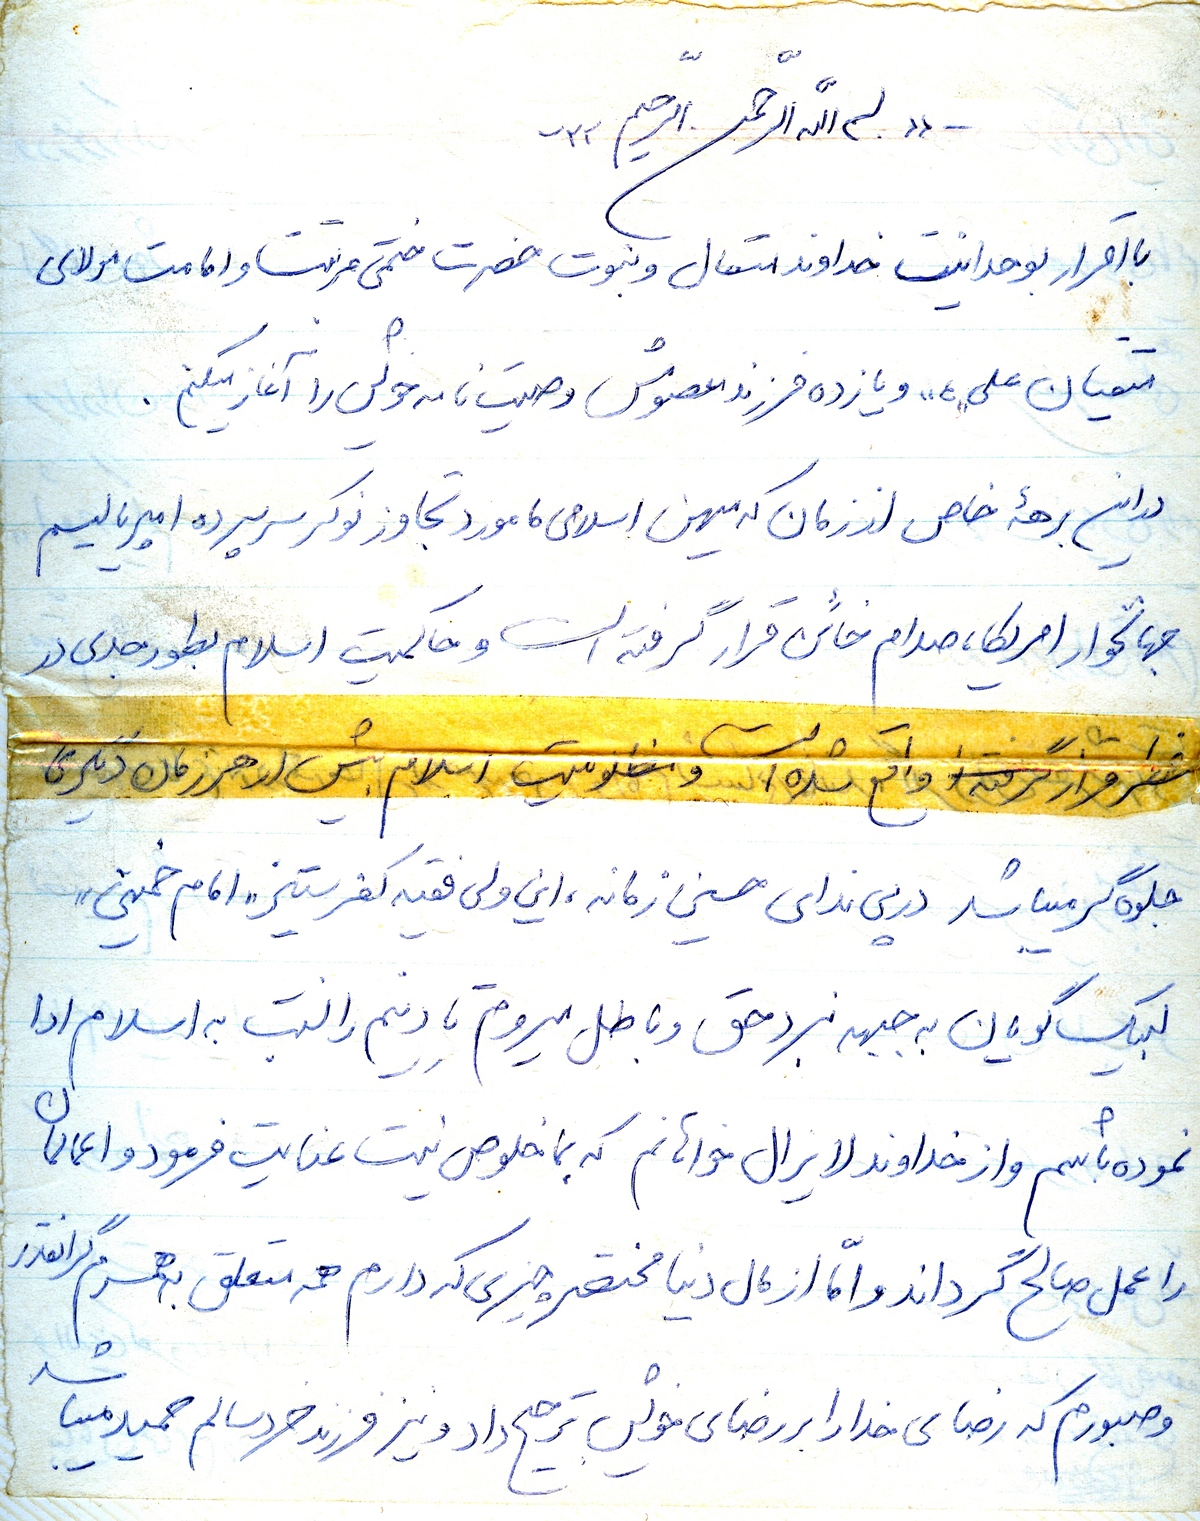 -«بسم الله الرّحمن الرّحیم»-
با اقرار بوحدانیت خداوند متعال و نبوت حضرت ختمی مرتبت و امامت مولای
متقیان علی «ع» و یازده فرزند معصومش وصیت نامه خویش را آغاز میکنم .
در این برههٔ خاص از زمان که میهن اسلامی ما مورد تجاوز نوکر سرسپرده امپریالیسم
جهانخوار امریکا، صدام خائن قرار گرفته است و حاکمیت اسلام بطور جدی در
خطر واقع شده است و مظلومیت اسلام بیش از هر زمان دیگری
جلوه گر میباشد در پی ندای حسین زمانه ، این ولی فقیه کفر ستیز «امام خمینی»
لبیک گویان به جبهه نبرد حق و باطل میروم تا دینم را نسبت به اسلام ادا
نموده باشم و از خداوند لایزال خواهانم که بما خلوص نیت عنایت فرمود و اعمالمان
را عمل صالح گرداند و امّا از مال دنیا مختصر چیزی که دارم همه متعلق به همسرم گرانقدر
و صبورم که رضای خدا را بر رضای خویش ترجیح داد و نیز فرزند خردسالم حمید میباشد